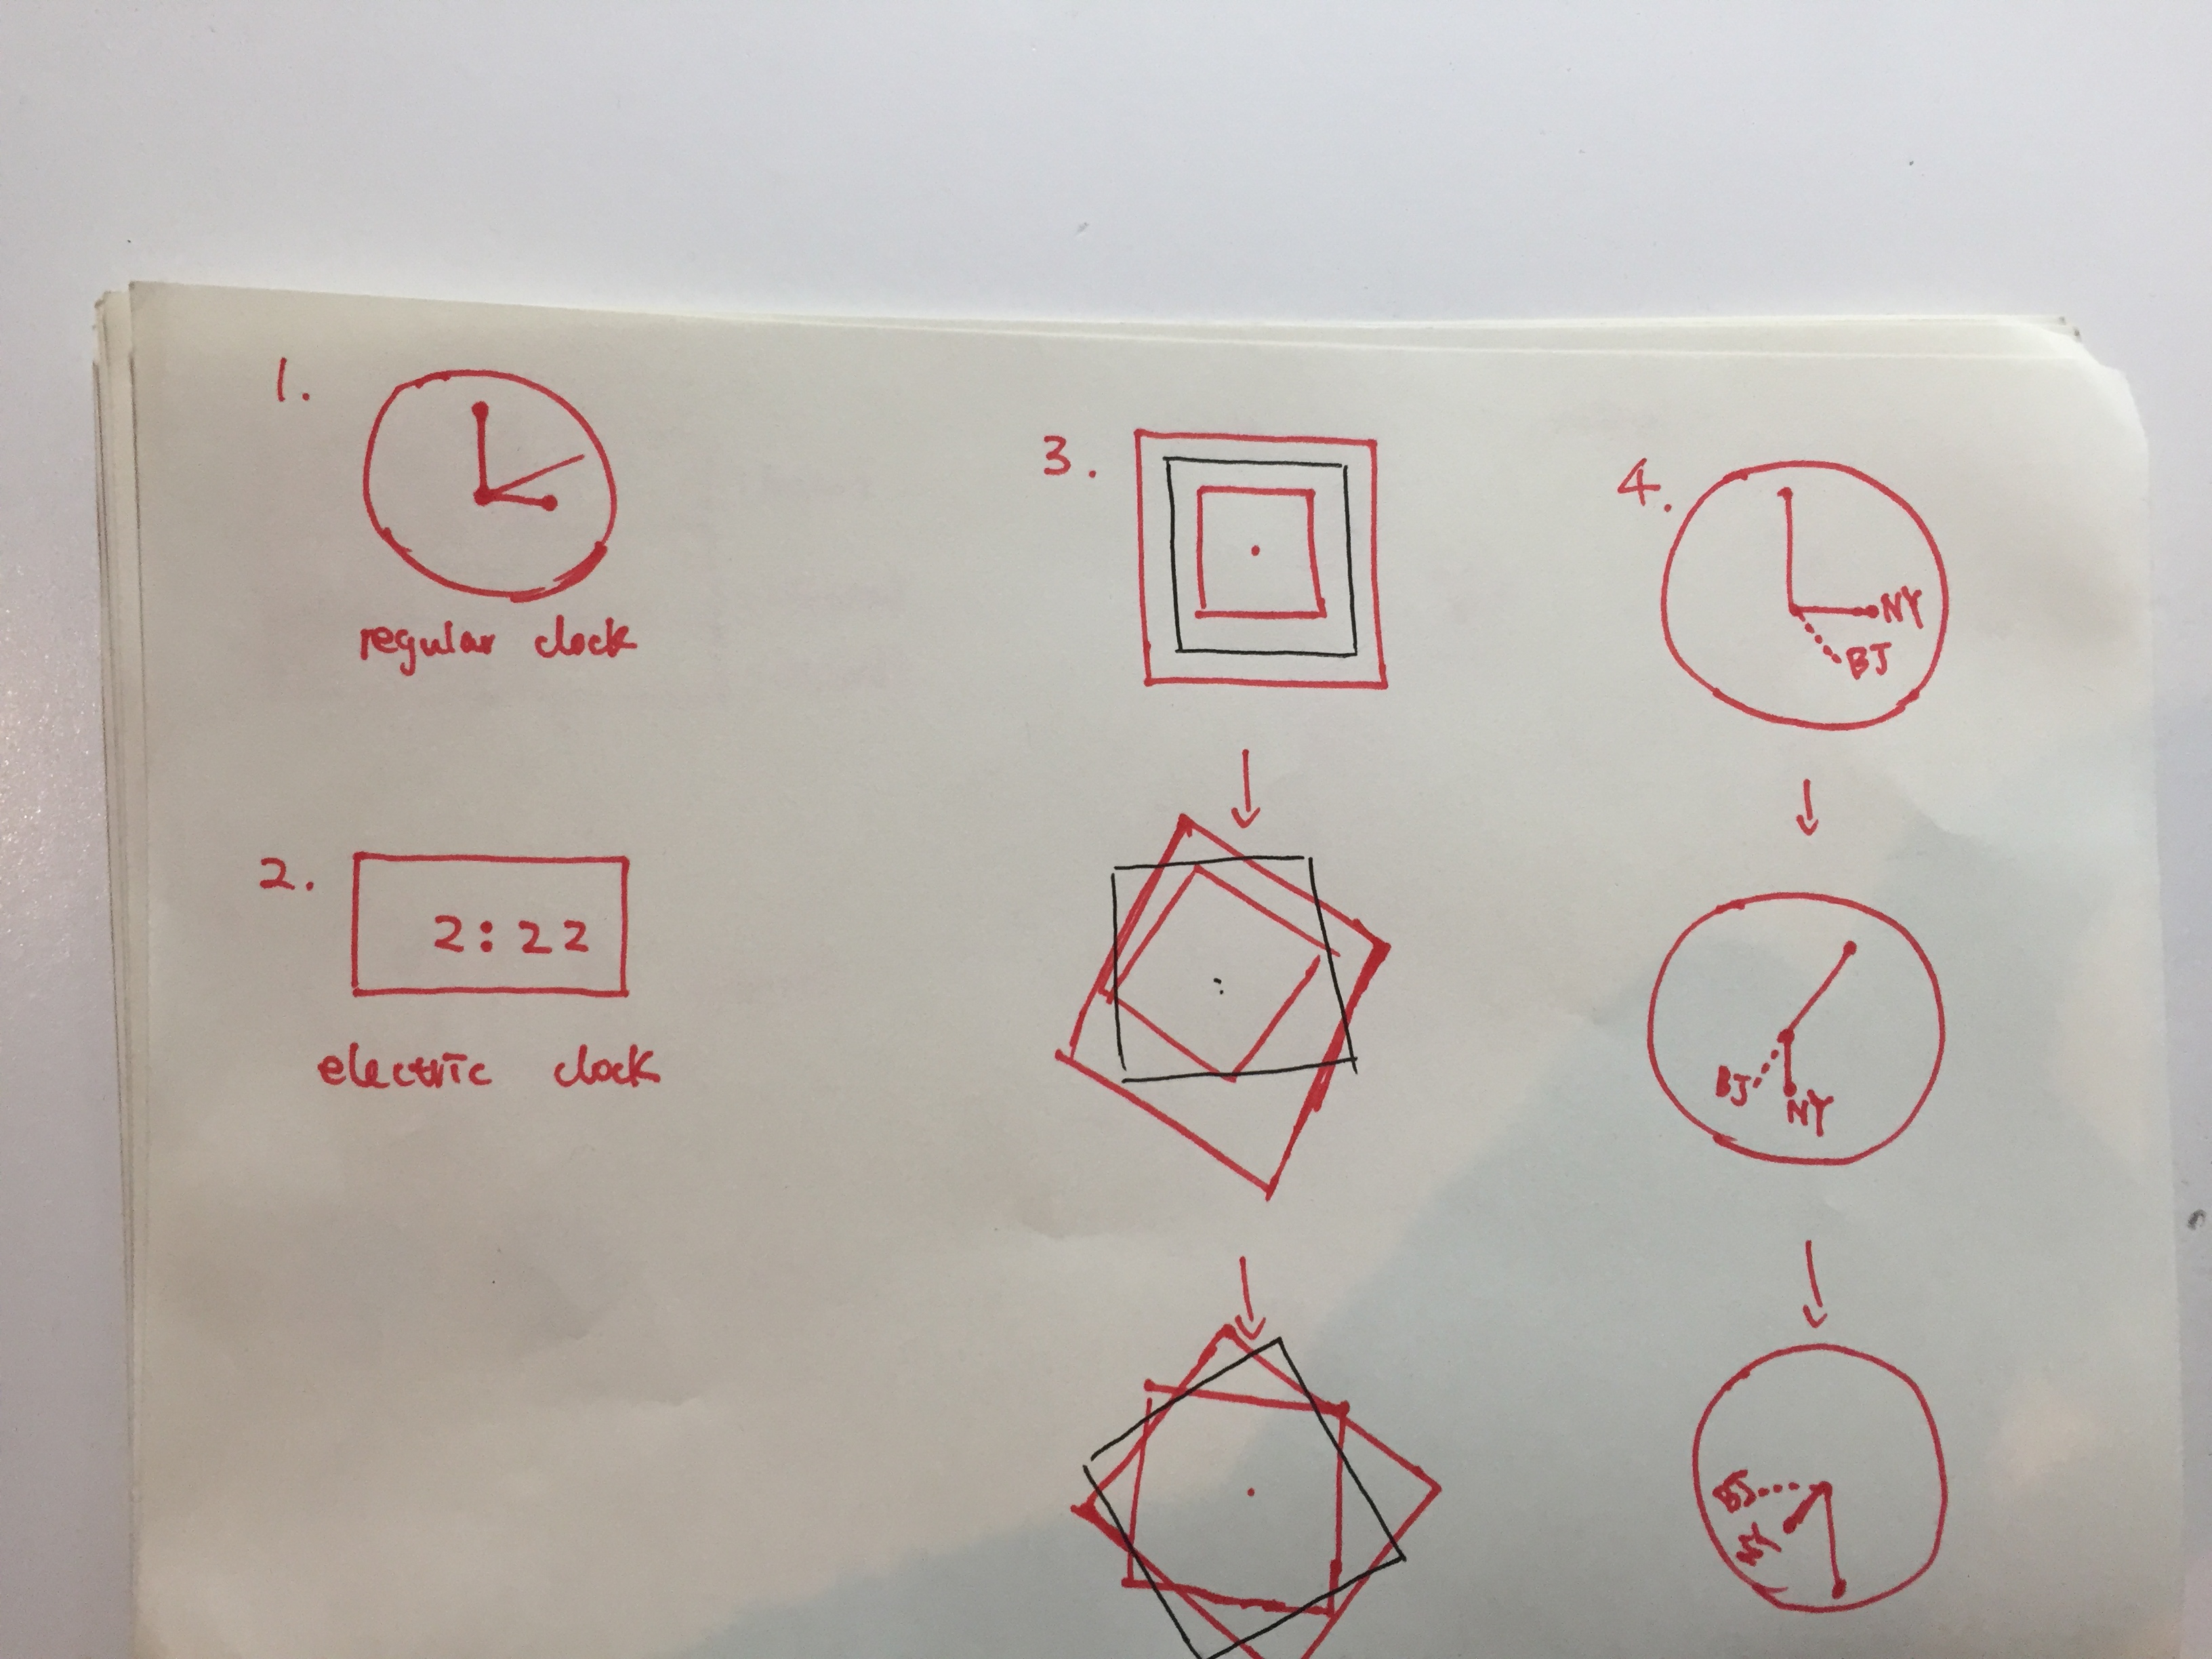 1.
regular clock
2.
2:22
electric clock
3.
4.
NY
BJ
BJ
NY
BJ
NY